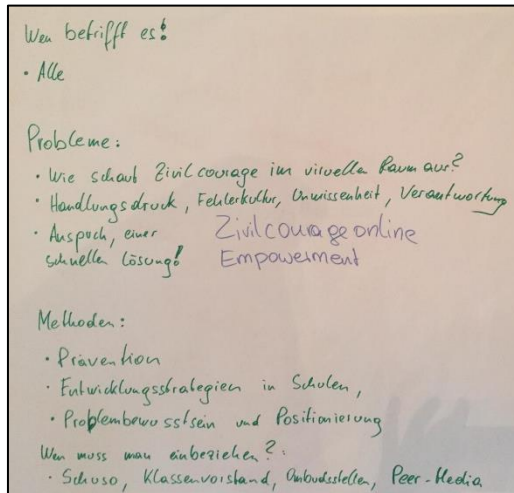 Wen betrifft es!
• Alle
Probleme:
• Wie schaut Zivilcourage im viruellen Raum aus?
• Handlungsdruck, Fehlerkultur, Unwissenheit, Verantwortung
• Anspuch, einer Zivilcourage online
schnellen Lösung! Empowerment
Methoden:
• Prävention
• Entwicklungsstrategien in Schulen,
• Problembewusstsein und Positionierung
Wen muss man einbeziehen?:
• Schuso, Klassenvorstand, Ombudsstellen, Peer-Media